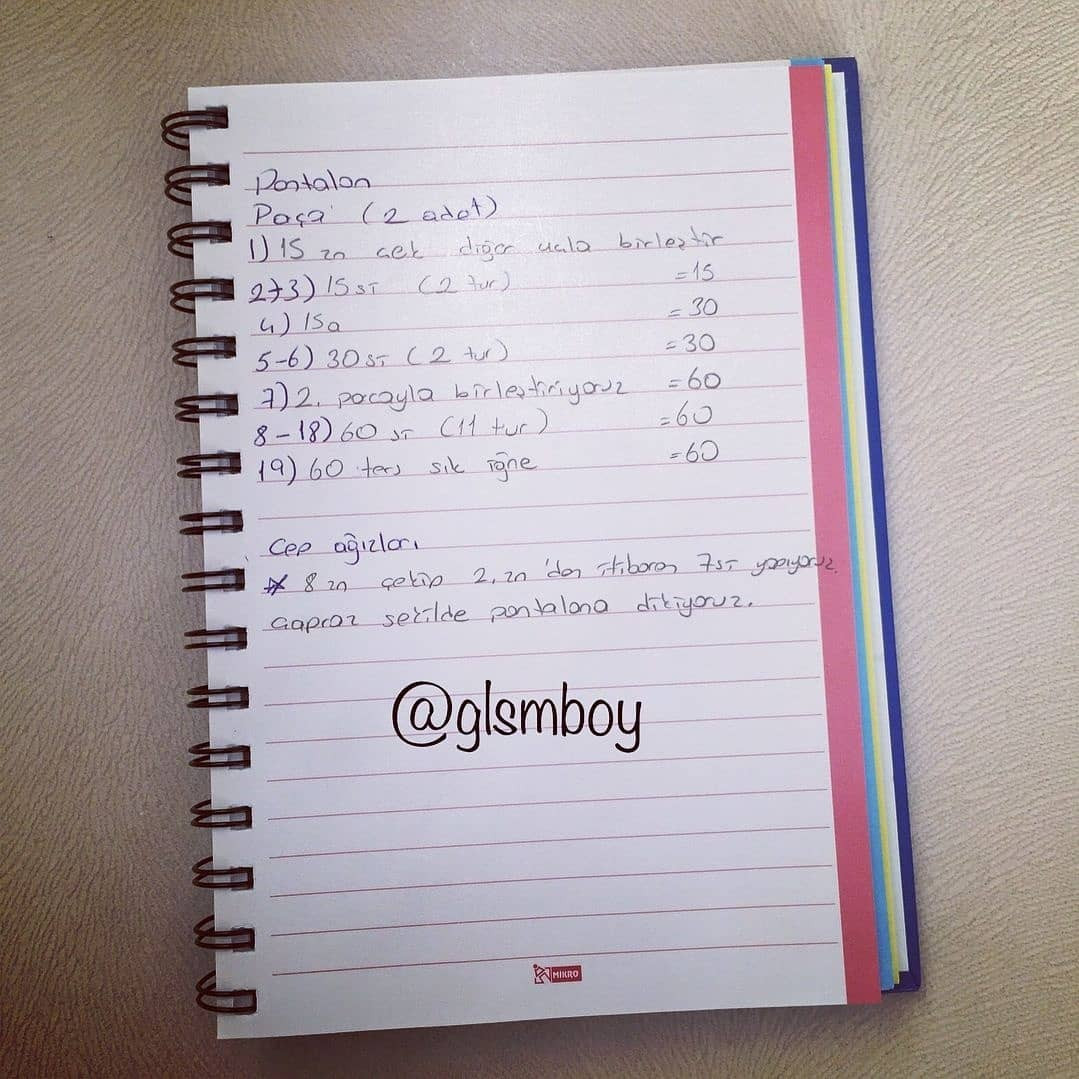 Pantalon
Paça (2 adet)
1) 15 zn çek diğer uçla birleştir
2+3) 15 sı (2 tur) =15
4) 15a =30
5-6) 30 sı (2 tur) =30
7) 2. paçayla birleştiriyoruz =60
8-18) 60 sı (11 tur) =60
19) 60 ters sık iğne =60
Cep ağızları
* 8 zn çekip 2. zn'den itibaren 7sı yapıyoruz.
Çapraz şekilde pantalona dikiyoruz.
@glsmboy
MIKRO